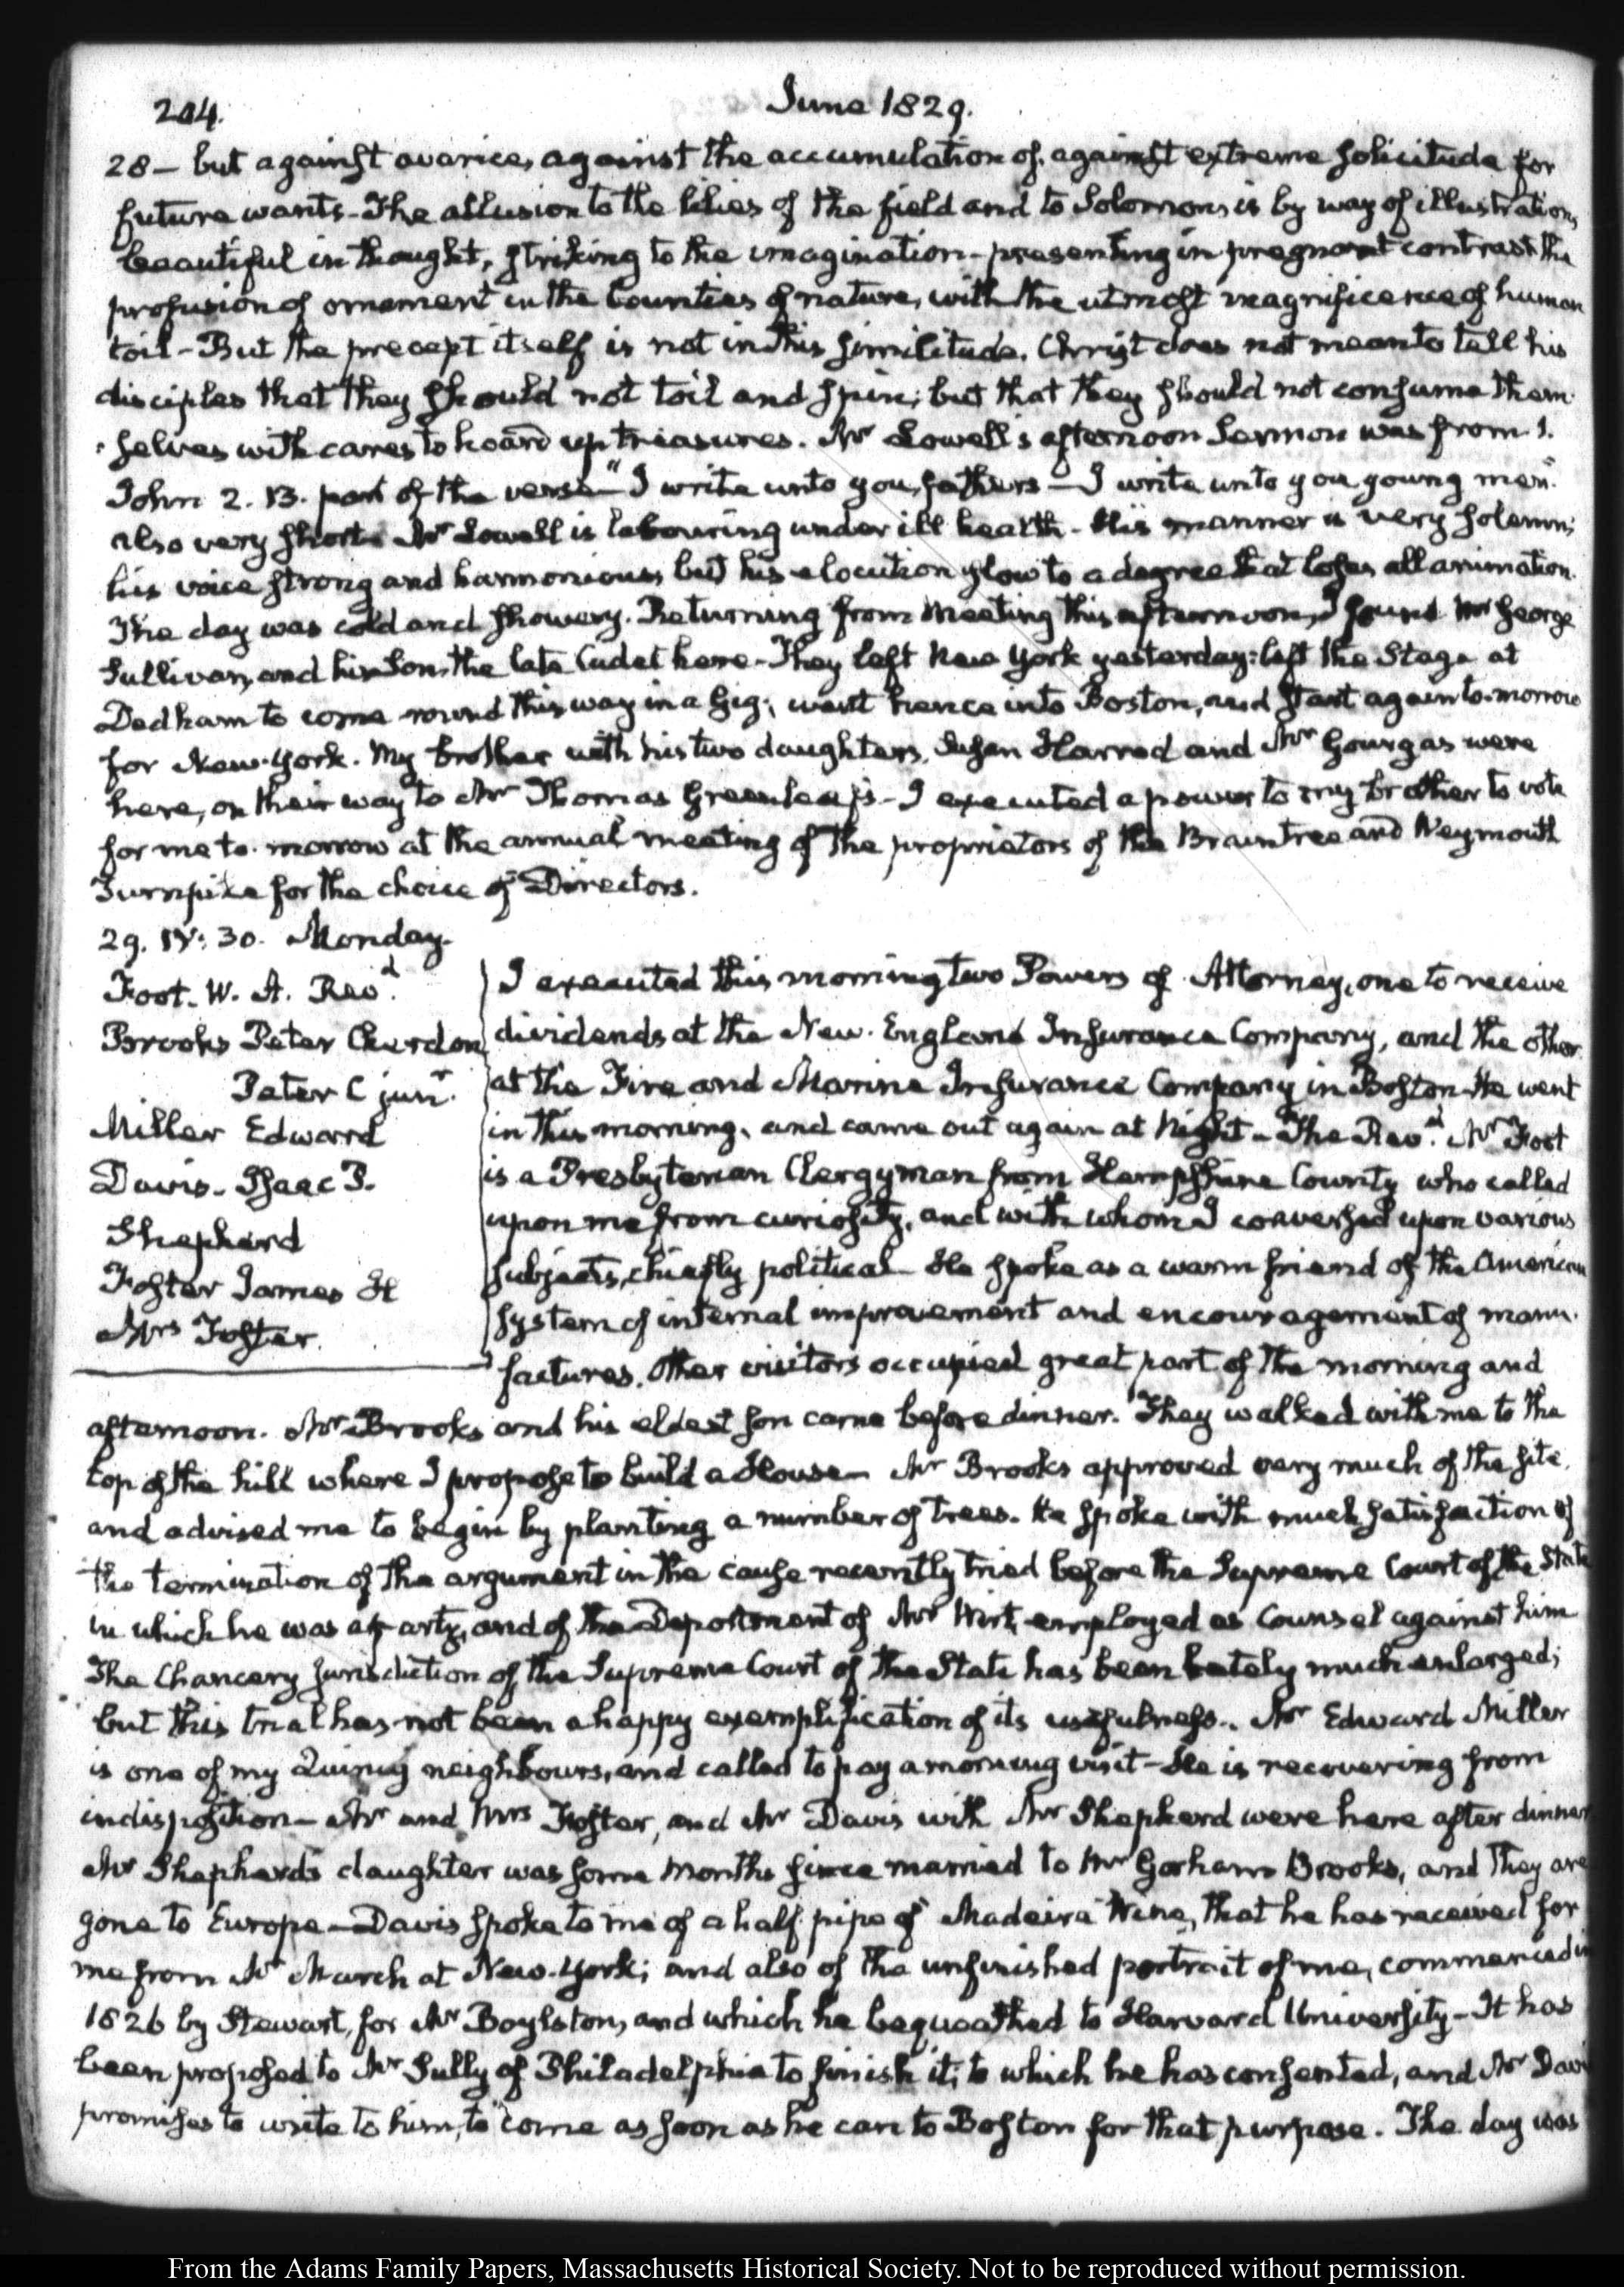 204.
June 1829.
28 — but against avarice, against the accumulation of, against extreme solicitude for
future wants - The allusion to the lilies of the field and to Solomon, is by way of illustration,
beautiful in thought, striking to the imagination - presenting in pregnant contrast the
profusion of ornament in the bounties of nature, with the utmost magnificence of human
toil - But the precept itself is not in this similitude. Christ does not mean to tell his
disciples that they should not toil and spin; but that they should not consume them-
selves with cares to hoard up treasures. Mr Lowell's afternoon Sermon was from 1.
John 2. 13. part of the verse - "I write unto you, fathers — I write unto you young men."
also very short. Mr Lowell is labouring under ill health - His manner is very solemn;
his voice strong and harmonious, but his elocution slow to a degree that loses all animation.
The day was cold and showery. Returning from Meeting this afternoon, I found Mr George
Sullivan, and his Son, the late Cadet here - They left New York yesterday: left the Stage at
Dedham to come round this way in a Gig; went hence into Boston, and start again to-morrow
for New-York. My brother with his two daughters, Susan Harrod and Mr Gourgas were
here, on their way to Mr Thomas Greenleaf's - I executed a power to my brother to vote
for me to-morrow at the annual meeting of the proprietors of the Braintree and Weymouth
Turnpike for the choice of Directors.
29. IV: 30. Monday.
Foot. W. A. Revd.
Brooks Peter Chardon
Peter C junr.
Miller Edward
Davis. Isaac P.
Shepherd
Foster James H
Mrs Foster
I executed this morning two Powers of Attorney, one to receive
dividends at the New-England Insurance Company, and the other
at the Fire and Marine Insurance Company in Boston He went
in this morning, and came out again at Night - The Revd. Mr Foot
is a Presbyterian Clergyman from Hampshire County who called
upon me from curiosity, and with whom I conversed upon various
subjects, chiefly political - He spoke as a warm friend of the American
system of internal improvement and encouragement of manu-
factures. Other visitors occupied great part of the morning and
afternoon. Mr Brooks and his eldest son came before dinner. They walked with me to the
top of the hill where I propose to build a House - Mr Brooks approved very much of the site,
and advised me to begin by planting a number of trees. He spoke with much satisfaction of
the termination of the argument in the cause recently tried before the Supreme Court of the State
in which he was a party, and of the Deportment of Mr Wirt, employed as Counsel against him
The Chancery jurisdiction of the Supreme Court of the State has been lately much enlarged;
but this trial has not been a happy exemplification of its usefulness. Mr Edward Miller
is one of my Quincy neighbours, and called to pay a morning visit - He is recovering from
indisposition - Mr and Mrs Foster, and Mr Davis with Mr Shepherd were here after dinner
Mr Shepherd's daughter was some Months since married to Mr Gorham Brooks, and they are
gone to Europe - Davis spoke to me of a half pipe of Madeira Wine, that he has received for
me from Mr March at New-York; and also of the unfinished portrait of me, commenced in
1826 by Stewart, for Mr Boylston, and which he bequeathed to Harvard University - It has
been proposed to Mr Sully of Philadelphia to finish it; to which he has consented, and Mr Davi
promises to write to him, to come as soon as he can to Boston for that purpose. The day was
From the Adams Family Papers, Massachusetts Historical Society. Not to be reproduced without permission.